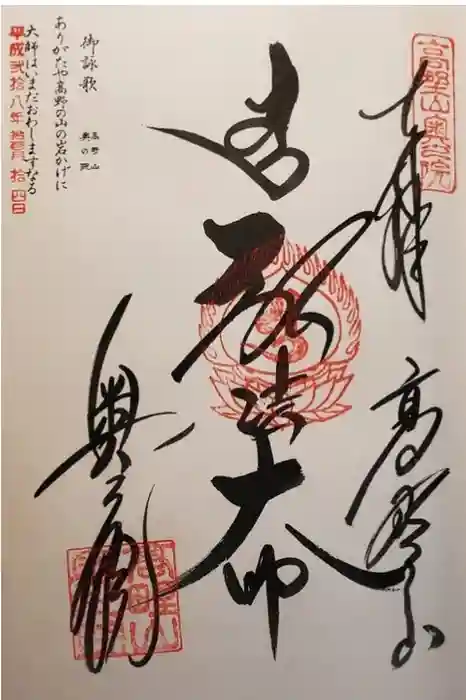 高野山奥之院
奉拝
高野山
弘法大師
奥之院
高野山
御詠歌
高野山
奥の院
ありがたや高野の山の岩かげに
大師はいまだおわしますなる
平成弐拾八年 月拾四日